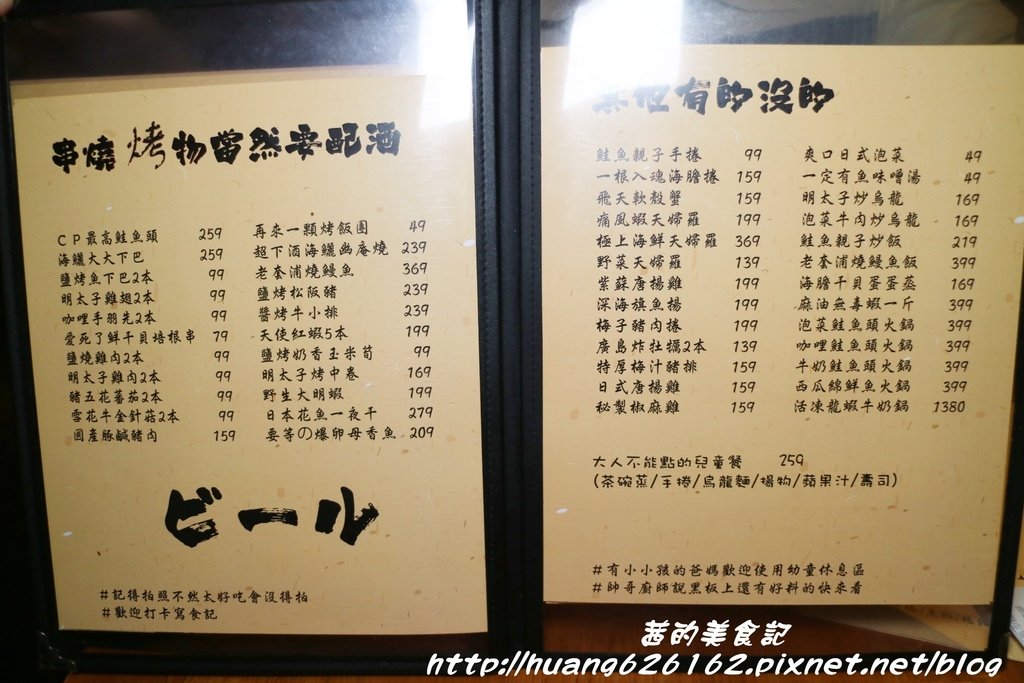 串燒烤物當然要配酒
CP最高鮭魚頭 259
海鱺大大下巴 259
鹽烤魚下巴2本 99
明太子雞翅2本 99
咖哩手羽先2本 99
愛死了鮮干貝培根串 79
鹽燒雞肉2本 99
明太子雞肉2本 99
豬五花蕃茄2本 99
雪花牛金針菇2本 99
國產豚鹹豬肉 159
再來一顆烤飯團 49
超下酒海鱺幽庵燒 239
老套浦燒鰻魚 369
鹽烤松阪豬 239
醬烤牛小排 239
天使紅蝦5本 199
鹽烤奶香玉米筍 99
明太子烤中卷 169
野生大明蝦 199
日本花魚一夜干 279
要等の爆卵母香魚 209
ビール
#記得拍照不然太好吃會沒得拍
#歡迎打卡寫食記
其他有的沒的
鮭魚親子手捲 99
一根入魂海膽捲 159
飛天軟殼蟹 159
痛風蝦天婦羅 199
極上海鮮天婦羅 369
野菜天婦羅 139
紫蘇唐揚雞 199
深海旗魚揚 199
梅子豬肉捲 199
廣島炸牡蠣2本 139
特厚梅汁豬排 159
日式唐揚雞 159
秘製椒麻雞 159
爽口日式泡菜 49
一定有魚味噌湯 49
明太子炒烏龍 169
泡菜牛肉炒烏龍 169
鮭魚親子炒飯 219
老套浦燒鰻魚飯 399
海膽干貝蛋蛋蒸 169
麻油無毒蝦一斤 399
泡菜鮭魚頭火鍋 399
咖哩鮭魚頭火鍋 399
牛奶鮭魚頭火鍋 399
西瓜綿鮮魚火鍋 399
活凍龍蝦牛奶鍋 1380
大人不能點的兒童餐 259
(茶碗蒸/手捲/烏龍麵/揚物/蘋果汁/壽司)
#有小小孩的爸媽歡迎使用幼童休息區
#帥哥廚師說黑板上還有好料的快來看
茜的美食記
http://huang626162.pixnet.net/blog